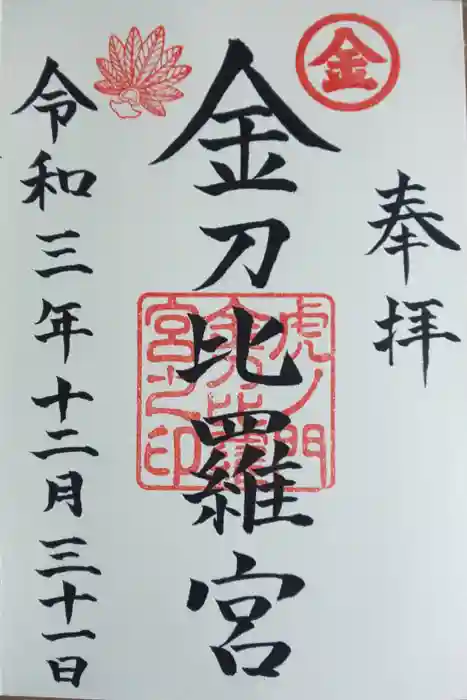 奉拝
金
金刀比羅宮
虎ノ門
金刀比羅
宮之印
令和三年十二月三十一日